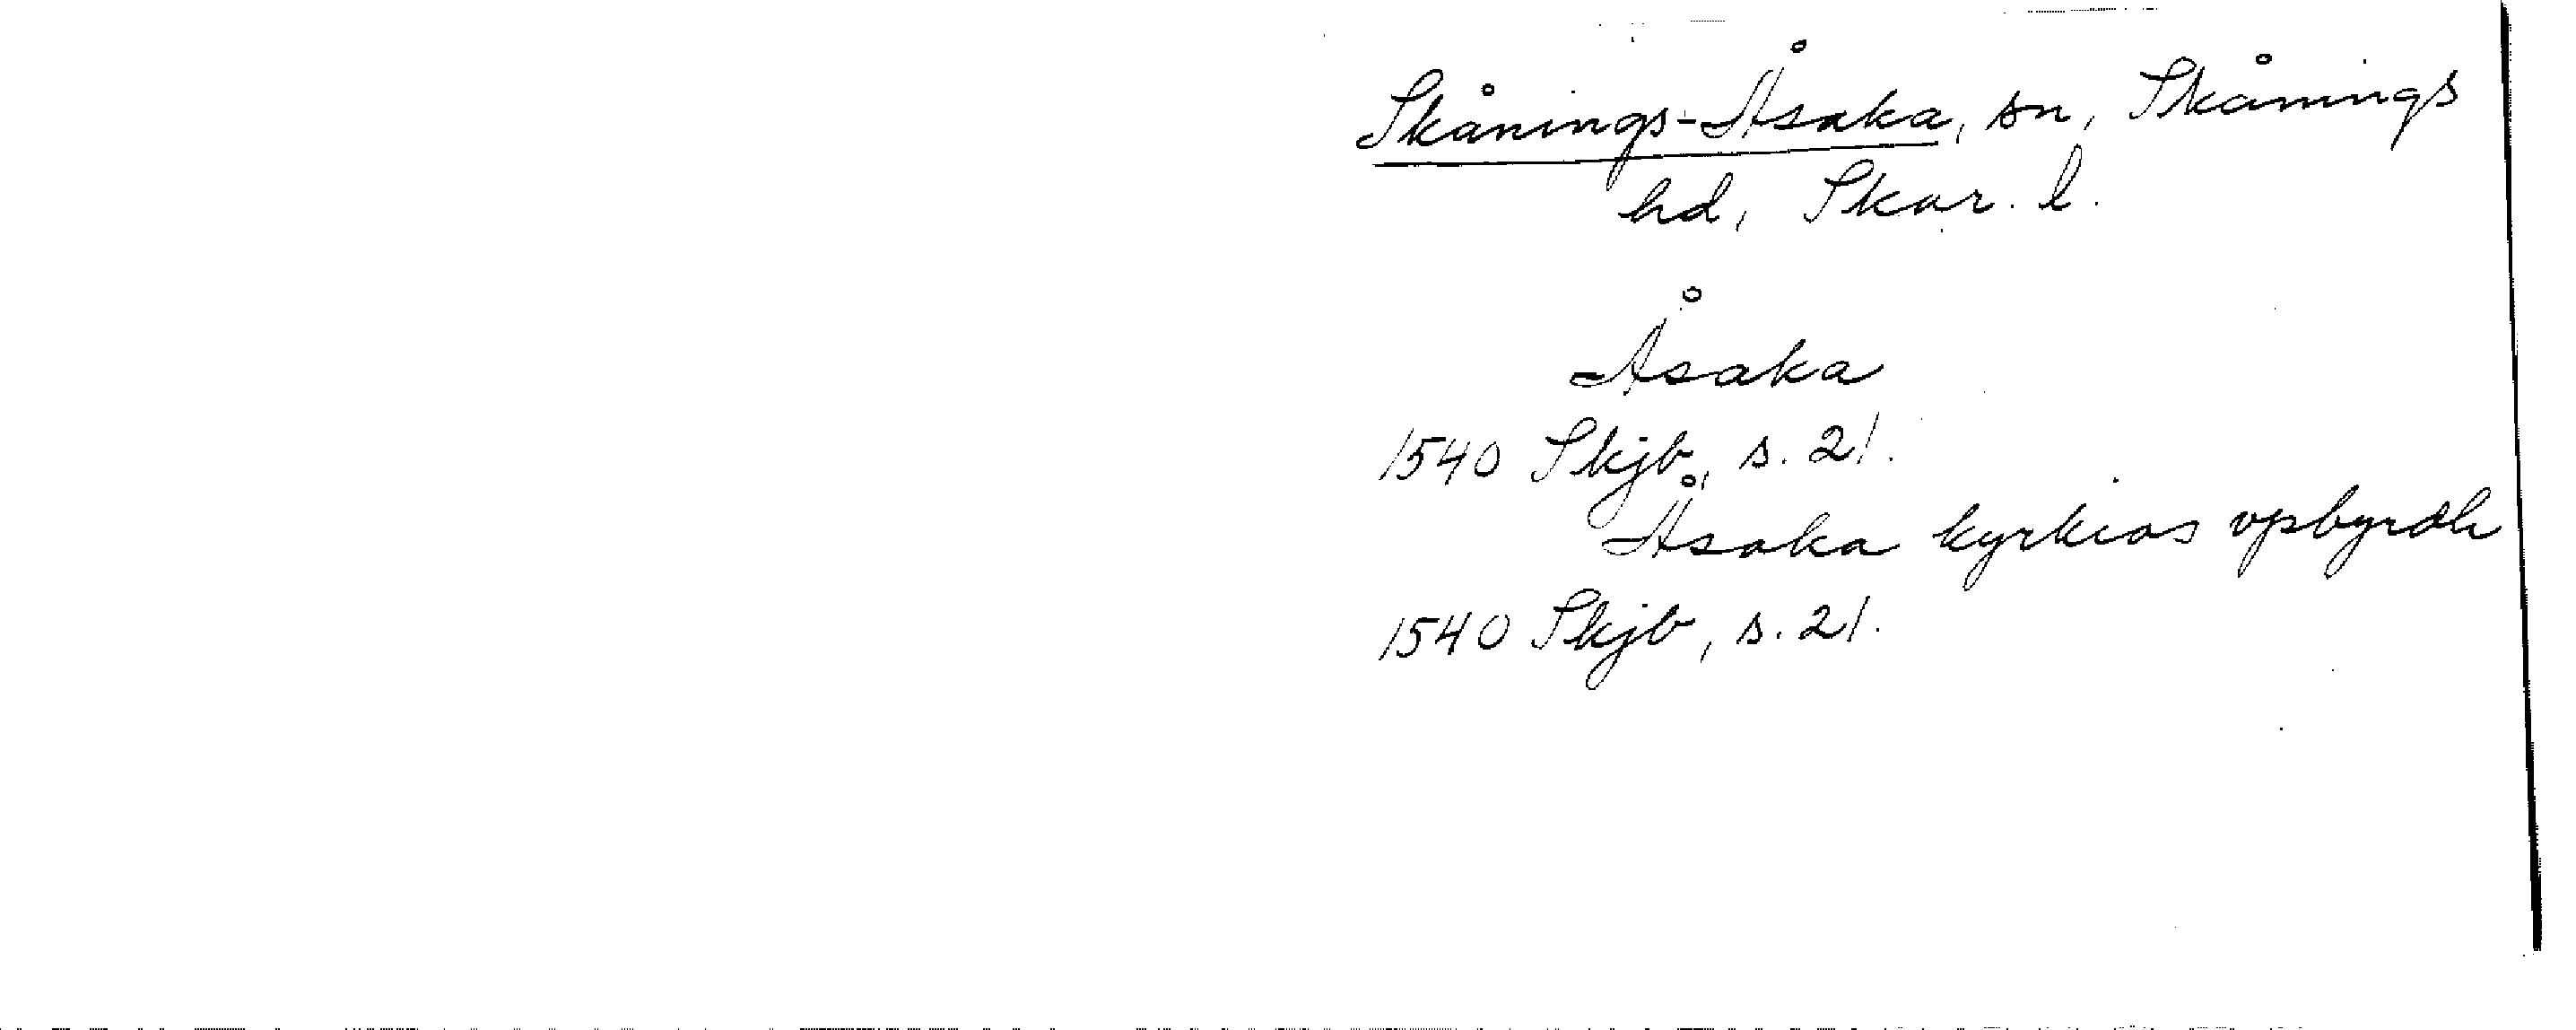 Skånings-Åsaka, sn, Skånings
hd, Skar. l.
Åsaka
1540 Skjb, s. 21.
Åsaka kyrkias vpbyrdh
1540 Skjb, s. 21.